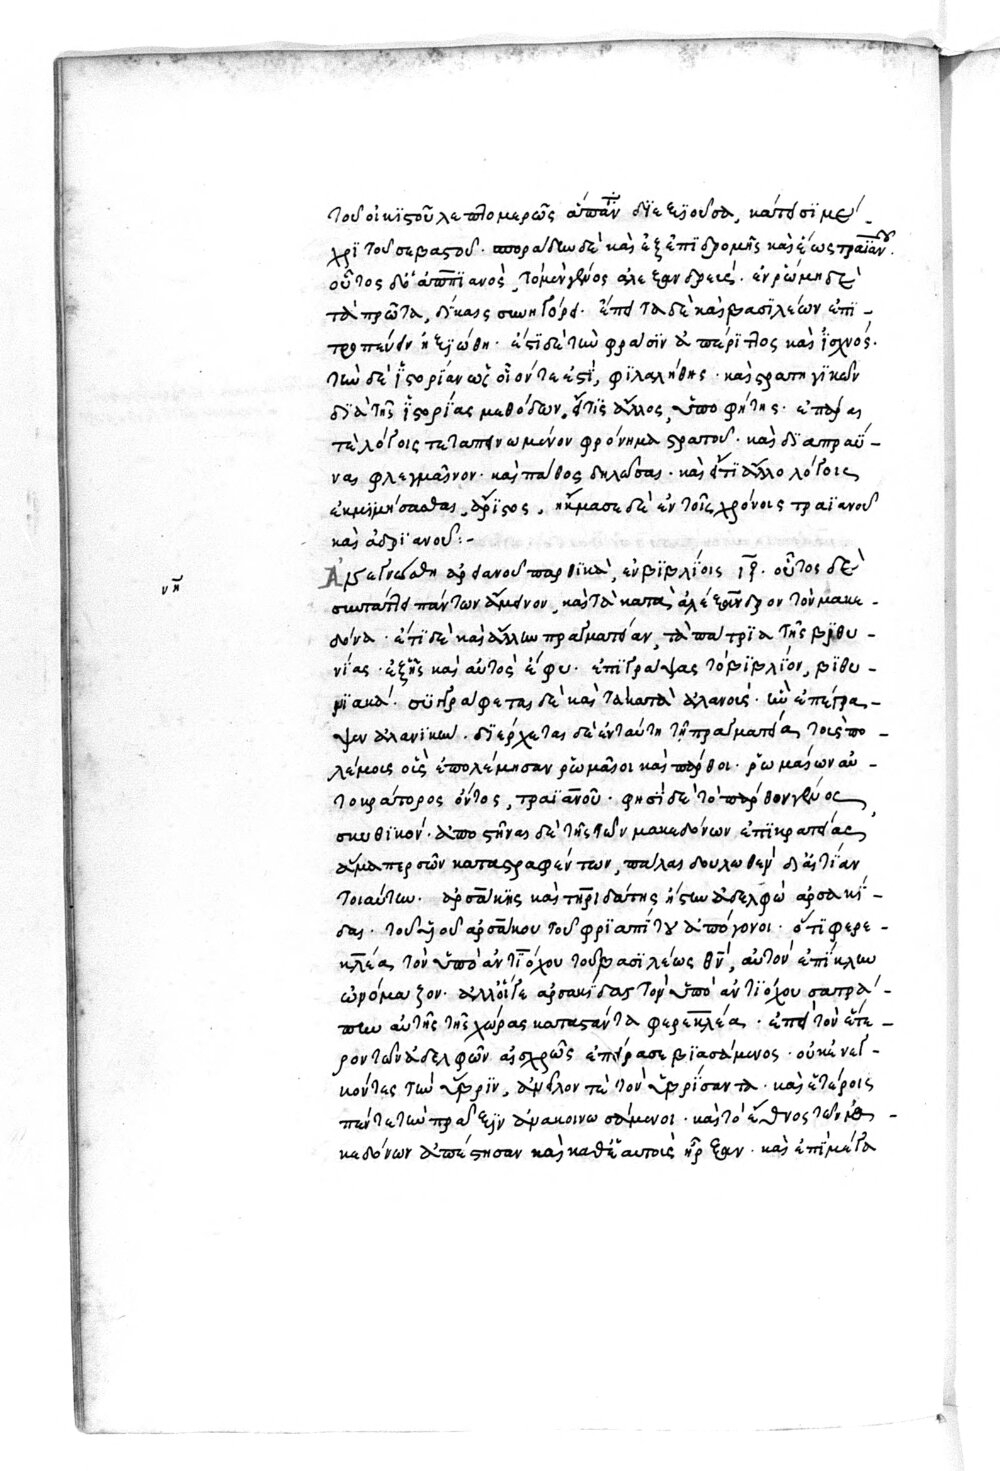 τοῦ οἰκιστοῦ λεπτομερῶς ἅπαν διεξιοῦσα, κάπεισι μέ-
χρι τοῦ σεβαστοῦ· σποράδην δὲ καὶ ἐξ ἐπιδρομῆς καὶ ἕως τραϊανοῦ.
οὗτος δὲ ὁ ἀππιανὸς, τὸ μὲν γένος ἀλεξανδρεύς· ἐν ῥώμῃ δὲ
τὰ πρῶτα, δίκαις συνηγόρει· ἔπειτα δὲ καὶ βασιλέων ἐπι-
τροπεύειν ἠξιώθη· ἔστι δὲ τὴν φράσιν ἀπέριττος καὶ ἰσχνός·
τὴν δὲ ἱστορίαν ὡς οἷόν τέ ἐστι, φιλαλήθης· καὶ στρατηγικῶν
διὰ τῆς ἱστορίας μεθόδων, εἴ τις ἄλλος, ὑποφήτης· ἐπᾶραί
τε λόγοις τεταπεινωμένον φρόνημα στρατοῦ· καὶ διαπραΰ-
ναι φλεγμαῖνον· καὶ πάθος δηλῶσαι· καὶ εἴ τι ἄλλο λόγοις
ἐκμιμήσασθαι, ἄριστος, ἤκμασε δὲ ἐν τοῖς χρόνοις τραϊανοῦ
καὶ ἀδριανοῦ:-
νη Ἀνεγνώσθη ἀρριανοῦ παρθικὰ, ἐν βιβλίοις ιζ. οὗτος δὲ
συντάττει πάντων ἄμεινον, καὶ τὰ κατὰ ἀλέξανδρον τὸν μακε-
δόνα· ἔτι δὲ καὶ ἄλλην πραγματείαν, τὰ πάτρια τῆς βιθυ-
νίας· ἐξ ἧς καὶ αὐτὸς ἔφυ· ἐπιγράψας τὸ βιβλίον, βιθυ-
νιακά· συγγράφεται δὲ καὶ τὰ κατὰ ἀλανούς· ἣν ἐπέγρα-
ψεν ἀλανικήν. διέρχεται δὲ ἐν ταύτῃ τῇ πραγματείᾳ τοὺς πο-
λέμους οὓς ἐπολέμησαν ῥωμαῖοι καὶ πάρθοι· ῥωμαίων αὐ-
τοκράτορος ὄντος, τραϊανοῦ· φησὶ δὲ τὸ πάρθων γένος
σκυθικόν· ἀποστῆναι δὲ τῆς τῶν μακεδόνων ἐπικρατείας
ἅμα περσῶν καταστραφέντων, πάλαι δουλωθὲν δι' αἰτίαν
τοιαύτην· ἀρσάκης καὶ τηριδάτης ἤστην ἀδελφὼ ἀρσακί-
δαι· τοῦ υἱοῦ ἀρσάκου τοῦ φριαπίτου ἀπόγονοι· ὅτι φερε-
κλέα τὸν ὑπὸ ἀντιόχου τοῦ βασιλέως θν, αὐτὸν ἐπίκλην
ὠνόμαζον· ἀλλ' οἵ γε ἀρσακίδαι τὸν ὑπὸ ἀντιόχου σατρά-
πην αὐτῆς τῆς χώρας καταστάντα φερεκλέα· ἐπεὶ τὸν ἕτε-
ρον τῶν ἀδελφῶν αἰσχρῶς ἐπείρασε βιασάμενος· οὐκ ἐνεγ-
κόντες τὴν ὕβριν, ἀνεῖλόν τε τὸν ὑβρίσαντα· καὶ ἑτέροις
πέντε τὴν πρᾶξιν ἀνακοινωσάμενοι· καὶ τὸ ἔθνος τῶν μα-
κεδόνων ἀπέστησαν καὶ καθ' ἑαυτοὺς ἦρξαν· καὶ ἐπὶ μέγα